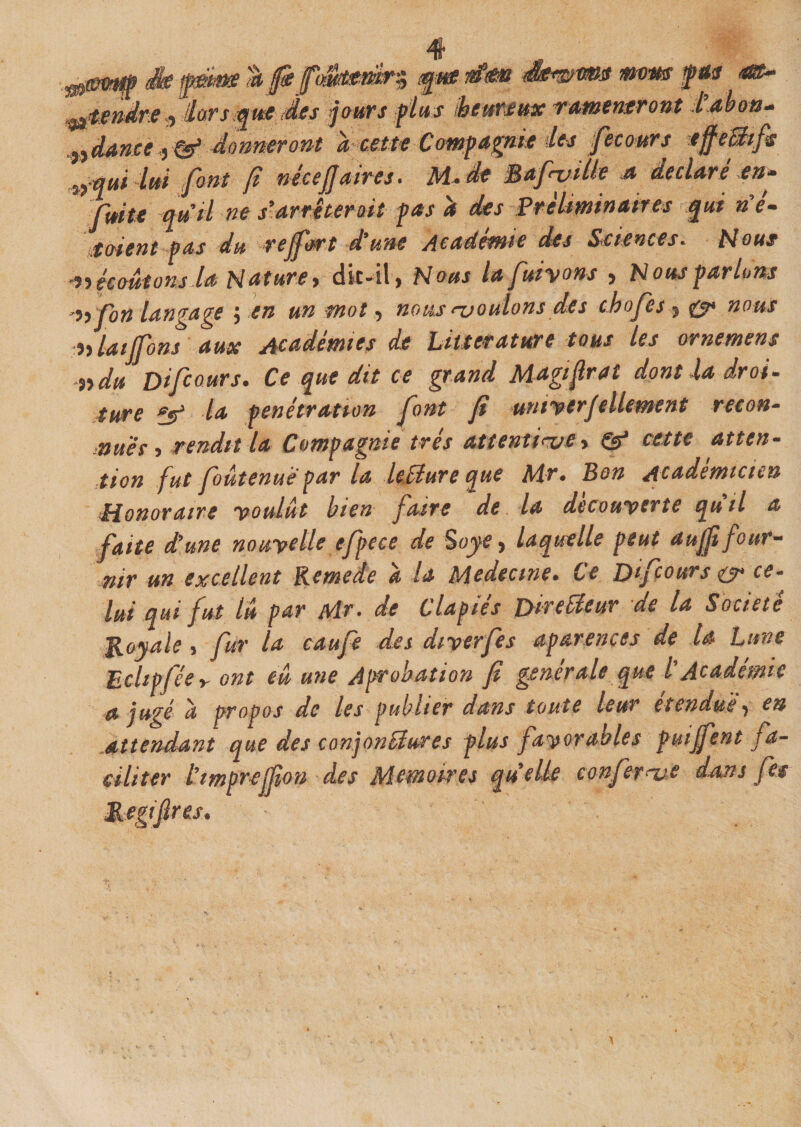 4
„coup de peine à se soûtenir; que n'en devons nous pas at-
„tendre, lors que des jours plus heureux rameneront l'abon-
„dance, & donneront à cette Compagnie les secours effectifs
„qui lui sont si nécessaires. M. de Basville a declaré en-
suite qu'il ne s'arrêteroit pas à des Préliminaires qui n'é-
toient pas du ressort d'une Académie des Sciences. Nous
„écoûtons la Nature, dit-il, Nous la suivons, Nous parlons
„son langage; en un mot, nous voulons des choses, & nous
„laissons aux Académies de Litterature tous les ornemens
„du Discours. Ce que dit ce grand Magistrat dont la droi-
ture & la penétration sont si universellement recon-
nuës, rendit la Compagnie trés attentive, & cette atten-
tion fut soûtenuë par la lecture que Mr. Bon Académicien
Honoraire voulût bien faire de la découverte qu'il a
faite d'une nouvelle espece de Soye, laquelle peut aussi four-
nir un excellent Remede à la Medecine. Ce Discours & ce-
lui qui fut lû par Mr. de Clapiés Directeur de la Societé
Royale, sur la cause des diverses aparences de la Lune
Eclipsée, ont eû une Aprobation si générale que l'Académie
a jugé à propos de les publier dans toute leur étenduë, en
attendant que des conjonctures plus favorables puissent fa-
ciliter l'impression des Memoires qu'elle conserve dans ses
Registres.